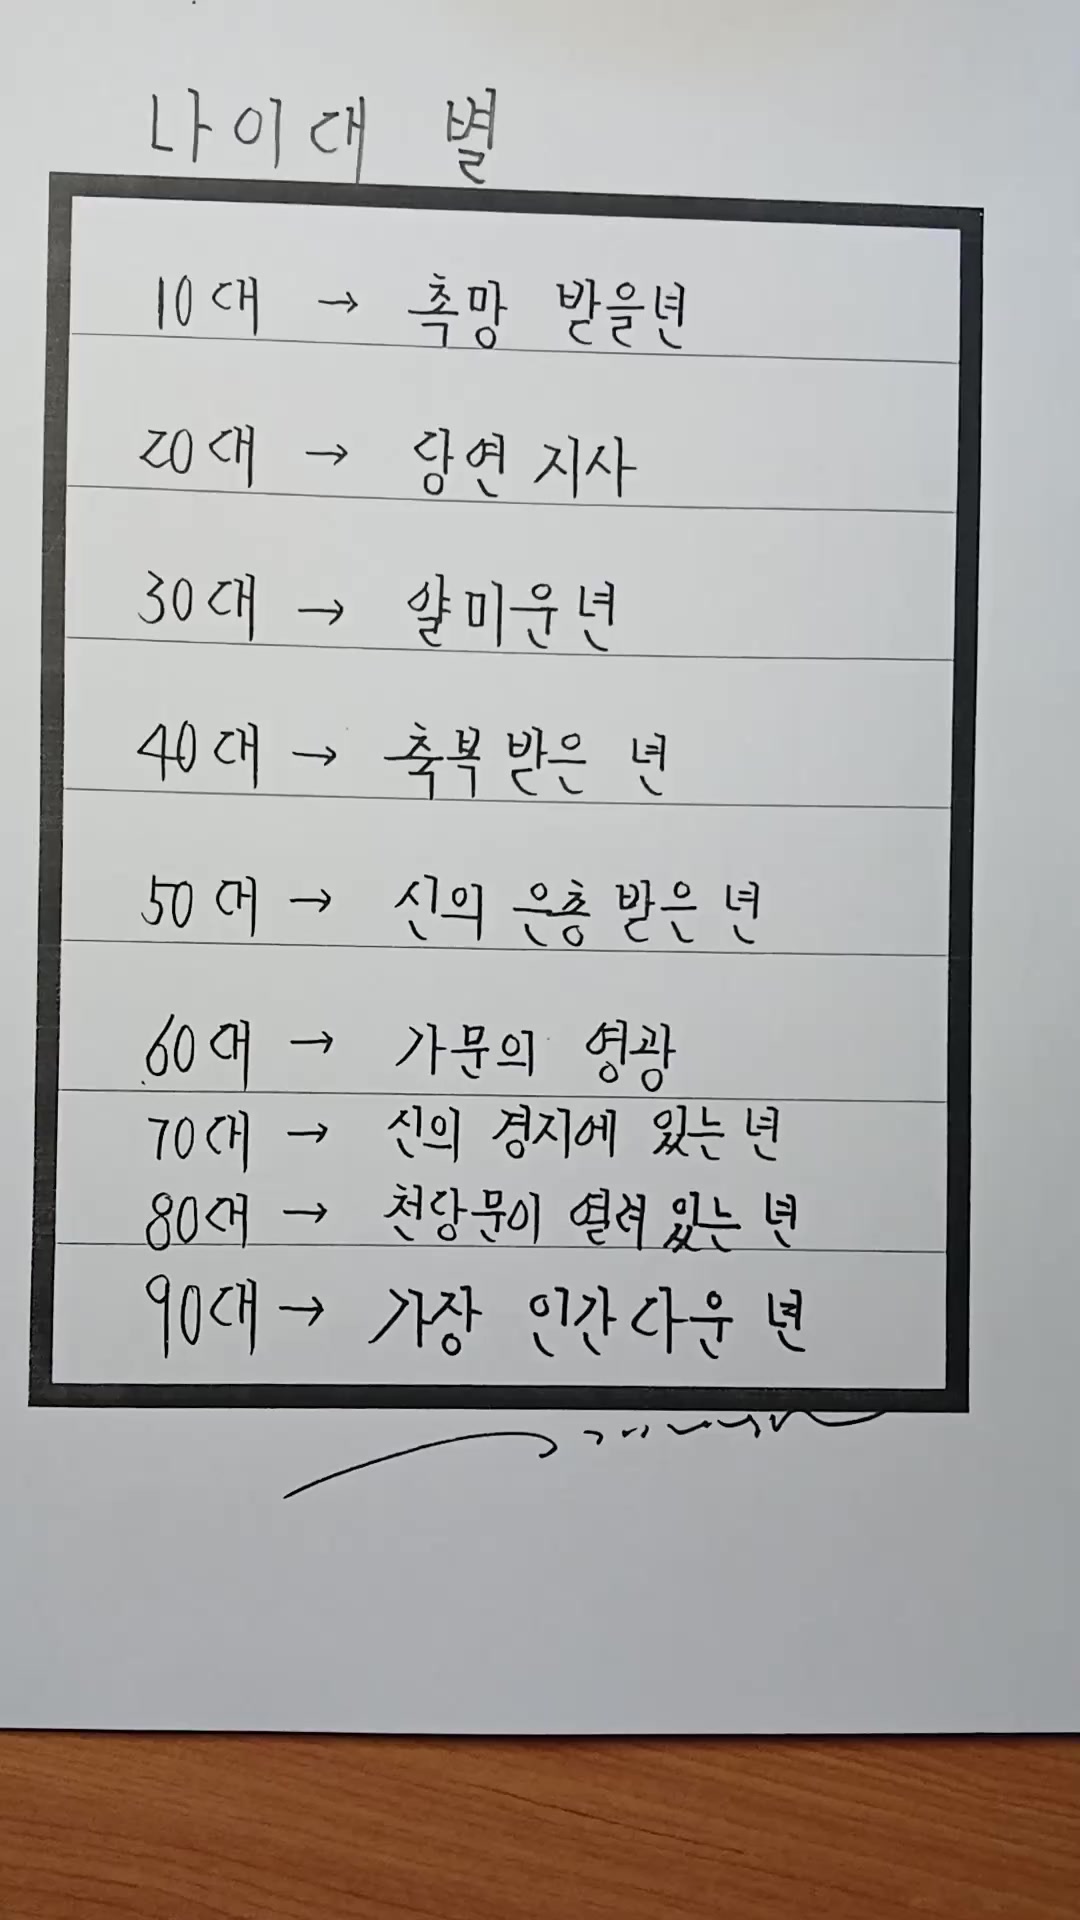 나이대 별
10대 → 촉망 받을년
20대 → 당연 지사
30대 → 얄미운년
40대 → 축복받은 년
50대 → 신의 은총 받은 년
60대 → 가문의 영광
70대 → 신의 경지에 있는 년
80대 → 천당문이 열려 있는 년
90대 → 가장 인간다운 년